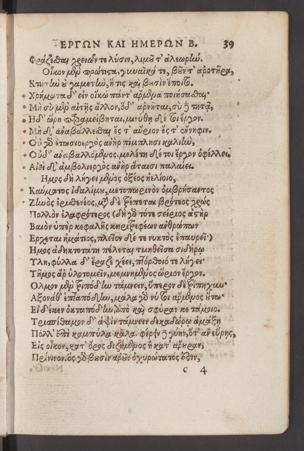 ΕΡΓΩΝ ΚΑΙ ΗΜΕΡΩΝ Β. 39
φράζεσθαι χρειῶν τε λύσιν, λιμοῦ τ' ἀλεωρήν.
Οἶκον μὲν πρώτιστα, γυναῖκά τε, βοῦν τ' ἀροτῆρα,
Κτητὴν οὐ γαμετὴν, ἥ τις καὶ βουσὶν ἕποιτο.
Χρήματα δ' εἰν οἴκῳ πάντ' ἄρμενα ποιήσασθαι,
Μὴ σὺ μὲν αἰτῇς ἄλλον, ὁ δ' ἀρνῆται, σὺ τητᾷ,
Ἡ δ' ὥρη παραμείβηται, μινύθῃ δέ τοι ἔργον.
Μὴ δ' ἀναβάλλεσθαι ἔς τ' αὔριον ἔς τ' ἔννηφιν.
Οὐ γὰρ ἐτωσιοεργὸς ἀνὴρ πίμπλησι καλιὴν,
Οὐδ' ἀναβαλλόμενος. μελέτη δέ τοι ἔργον ὀφέλλει.
Αἰεὶ δ' ἀμβολιεργὸς ἀνὴρ ἄταισι παλαίει.
Ἦμος δὴ λήγει μένος ὀξέος ἠελίοιο,
Καύματος ἰδαλίμου, μετοπωρινὸν ὀμβρήσαντος
Ζηνὸς ἐρισθενέος, μετὰ δὲ τρέπεται βρότεος χρὼς
Πολλὸν ἐλαφρότερος (δὴ γὰρ τότε σείριος ἀστὴρ
Βαιὸν ὑπὲρ κεφαλῆς κηριτρεφέων ἀνθρώπων
Ἔρχεται ἠμάτιος, πλεῖον δέ τε νυκτὸς ἐπαυρεῖ)
Ἦμος ἀδηκτοτάτη πέλεται τμηθεῖσα σιδήρῳ
Ὕλη, φύλλα δ' ἔραζε χέει, πτόρθοιό τε λήγει·
Τῆμος ἄρ' ὑλοτομεῖν, μεμνημένος ὥριον ἔργον.
Ὅλμον μὲν τριπόδην τάμνειν, ὕπερον δὲ τρίπηχυν.
Ἄξονά θ' ἑπταπόδην, μάλα γάρ νύ τοι ἄρμενον οὕτω.
Εἰ δέ κεν ὀκταπόδην, ἀπὸ καὶ σφῦράν κε τάμοιο.
Τρισπίθαμον δ' ἄψιν τάμνειν δεκαδώρῳ ἁμάξῃ
Πόλλ' ἐπὶ καμπύλα κᾶλα. φέρειν δὲ γύην, ὅτ' ἂν εὕρῃς,
Εἰς οἶκον, κατ' ὄρος διζήμενος ἢ κατ' ἄρουραν,
Πρίνινον. ὃς γὰρ βουσὶν ἀροῦν ὀχυρώτατός ἐστιν,
c 4